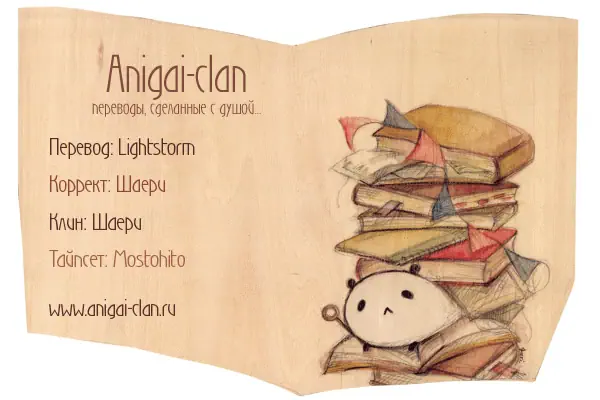 Anigai-clan
переводы, сделанные с душой...
Перевод: Lightstorm
Коррект: Шаери
Клин: Шаери
Тайпсет: Mostohito
www.anigai-clan.ru